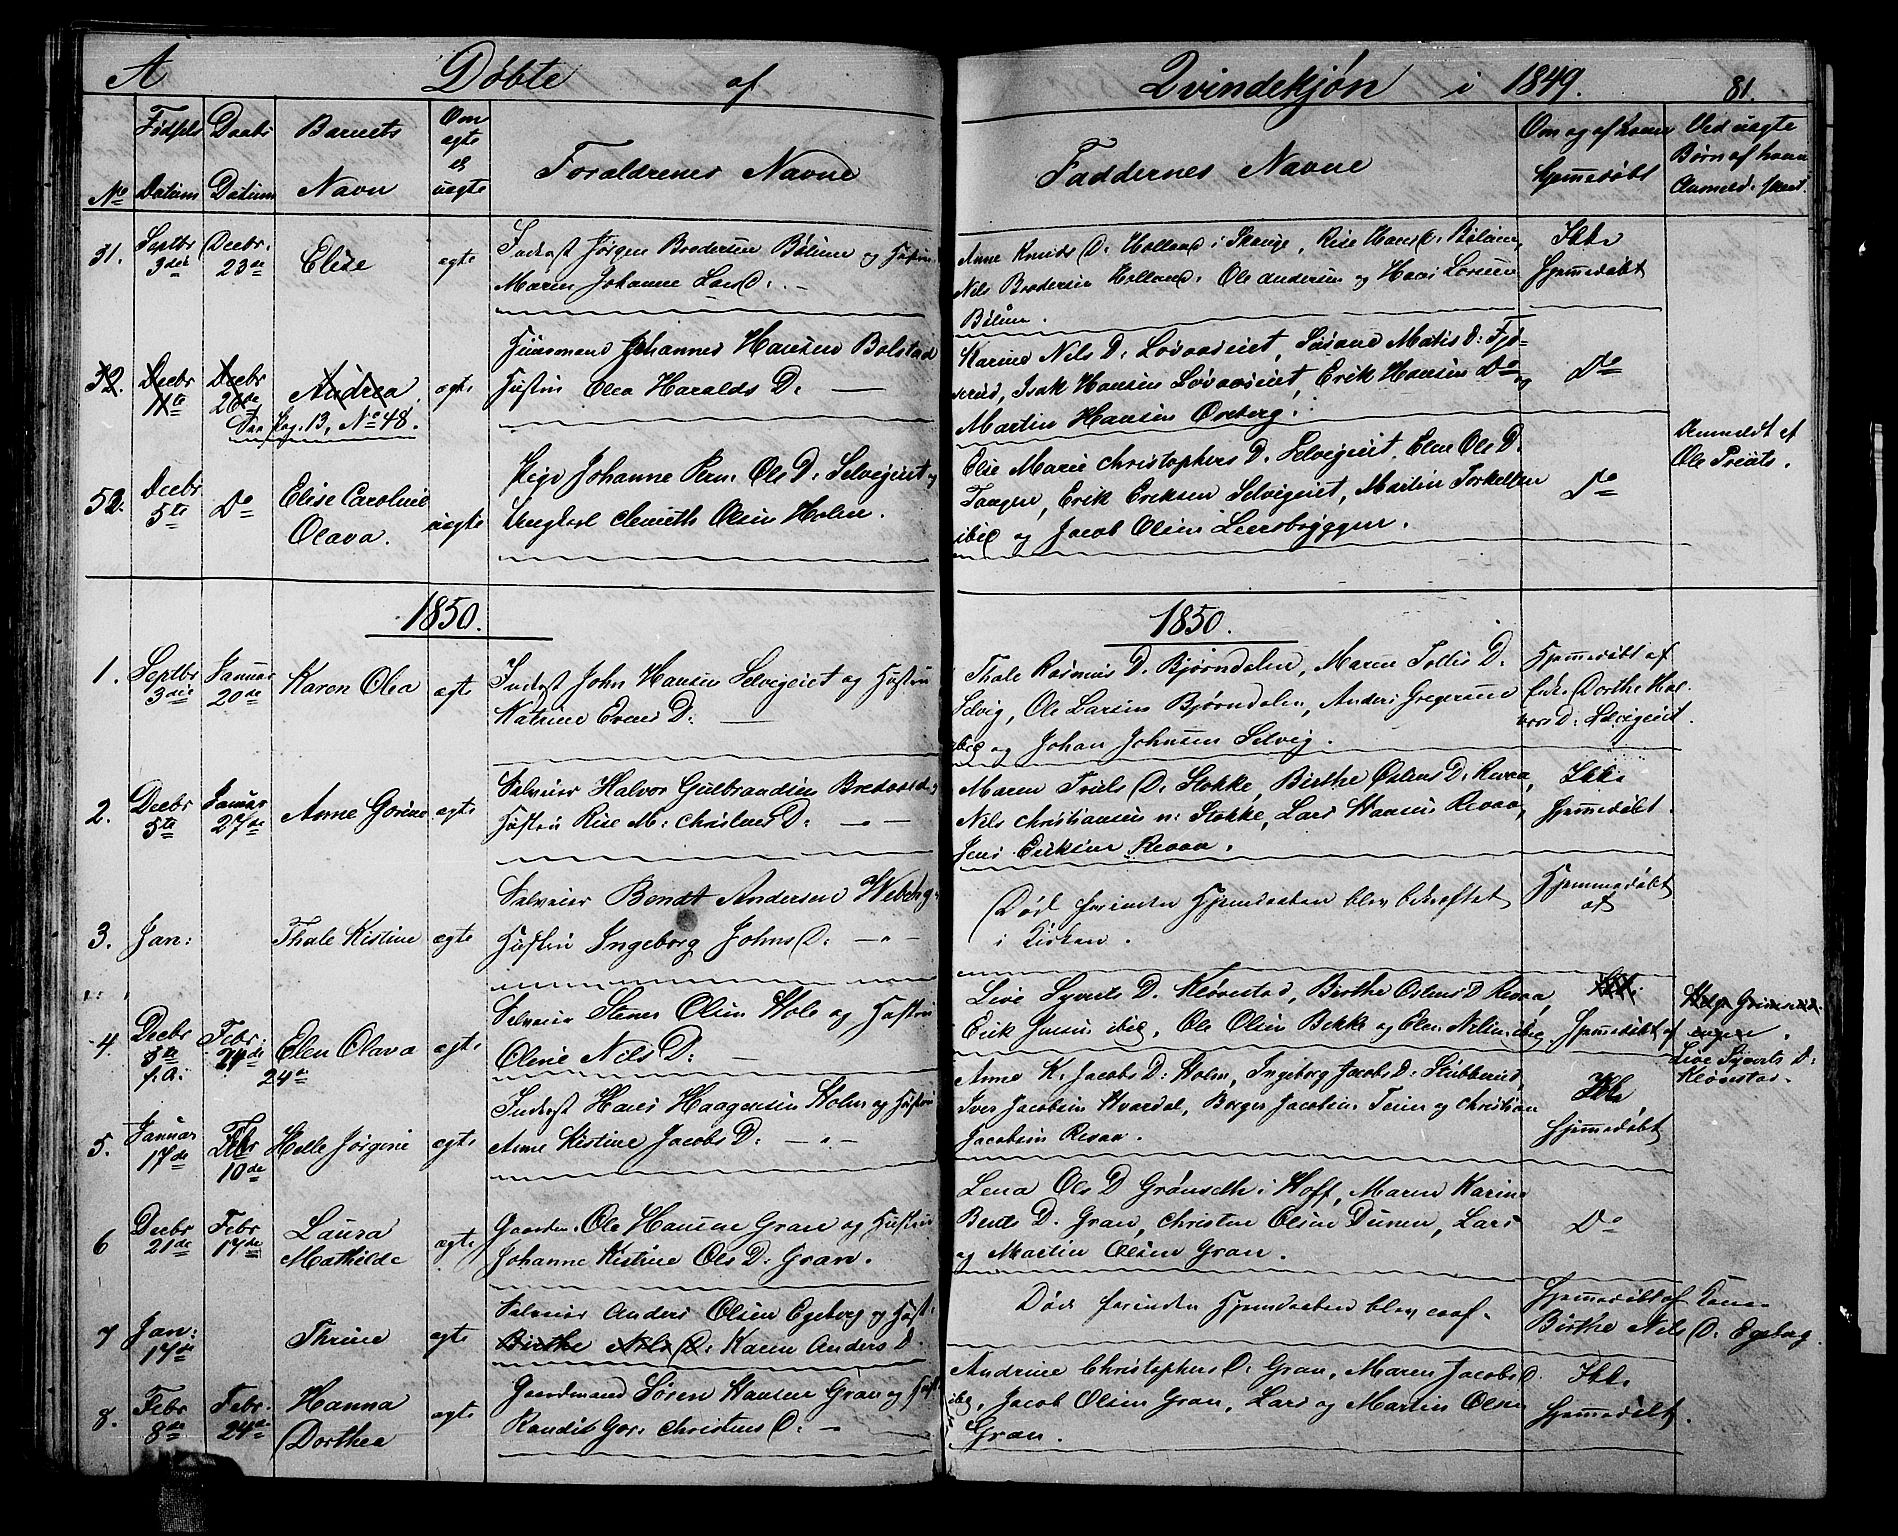 A Døbte af Qvindekjøn i 1849. 81.
No
Fødsels Datum
Daabs Datum
Barnets Navn
Om ægte el uægte
Forældrenes Navne
Faddernes Navne
Om og af hvem hjemmedøbt
Ved uægte Børn af hvem Anmeld: skeet.
31. Septbr 3die Decbr. 23de Elise ægte
Inderst Jørgen Brodersen Bølum og Hustru
Maren Johanne Lars D:
Anne Knuds D: Holland i Skouge, Rise Hans D: Bølum,
Nils Brodersen Holland: Ole Andersen og Hans Larsen
Bølum.
Ikke
hjemmedøbt
32. Decbr 11te Decbr 26de Andrea ægte
See Pag. 13, No 48.
Huusmand Johannes Hansen Bolstad
Hustru Olea Haralds D:
Karine Nils D: Løvaaseiet, Matis D:
Isak Hansen Løvaaseiet, Erik Hansen Do og
Martin Hansen Oreberg.
Do
52. Decbr 5te Do Elise Caroline
Olava. uægte
Pige Johanne Ols D: Selvigeiet og
Ungkarl Olsen Holm.
Else Marie Christophers D. Selvigeiet, Elen Ols D.
Taagen, Erik Eriksen Selvigeiet, Martin Torkelsen
ibid og Jacob Olsen Leersbryggen.
Do
Anmeldt af
Ole
1850. 1850.
1. Septbr 3die Januar 20de Karen Olea ægte
Inderst John Hansen Selvigeiet og Hustru
Katrine Evens D:
Thale Rasmus D. Bjørndalen, Maren Tollis D.
Selvig, Ole Larsen Bjørndalen, Anders Gregersen
ibid og Johan Johnsen Selvig.
Hjemmedøbt af
Dorthe Hal-
vors D: Selvigeiet.
2. Decbr 5te Januar 27de Anne Gorine ægte
Selveier Halvor Gulbrandsen
Hustru Rise M: Christens D:
Maren Truls D. Stokke, Birthe Østens D: Revaa,
Nils Christiansen n: Stokke, Lars Hansen Revaa,
Jens Eriksen Revaa.
Ikke
hjemmedøbt.
3. Jan: Thale Kistine ægte
Selveier Bendt Andersen Weberg
Hustru Ingeborg Johns D:
Død forinden Hjemdaaben blev bekræftet
i Kirken.
Hjemmedøbt
af
4. Decbr 8te f.A: Febr: 24de Elen Olava 24de ægte
Selveier Olsen Hole og Hustru
Oline Nils D:
Live Syverts D. Kløvestad, Birthe Ostens D Revaa,
Erik Jensen ibid, Ole Olsen Bekke og Elen Nelsen ibid
Hjemmedøbt af
Live Syverts D:
Kløvestad.
5. Januar 17de Febr 10de Helle Jørgine ægte
Inderst Hans Haagensen Holm og Hustru
Anne Kistine Jacobs D:
Anne K. Jacobs D: Holm, Ingeborg Jacobs D: Stubberud,
Iver Jacobsen Hvardal, Borger Jacobsen Teien og Christian
Jacobsen Revaa.
Ikke
hjemmedøbt
6 Decbr 21de Febr 17de Laura
Mathilde ægte
Gaardm. Ole Hansen Gran og Hustru
Johanne Kistine Ols D: Gran.
Lena Ols D Grønseth i Hoff, Maren Karine
Bents D. Gran, Christen Olsen Dunen, Lars
og Martin Olsen Gran.
Do
7 Jan: 17de Thrine ægte
Selveier Anders Olsen Egeberg og Hust:
Birthe Nils D: Karen Anders D.
Død forinden Hjemdaaben blev
Hjemmedøbt af Kone
Birthe Nils D. Egeberg
8. Febr 8de Febr. 24de Hanna
Dorthea ægte
Gaardmand Søren Hansen Gran og Hust
Randi Gor: Christens D:
Andrine Christophers D: Gran, Maren Jacobs D.
ibid, Jacob Olsen Gran, Lars og Martin Olsen
Gran.
Ikke
hjemmedøbt.